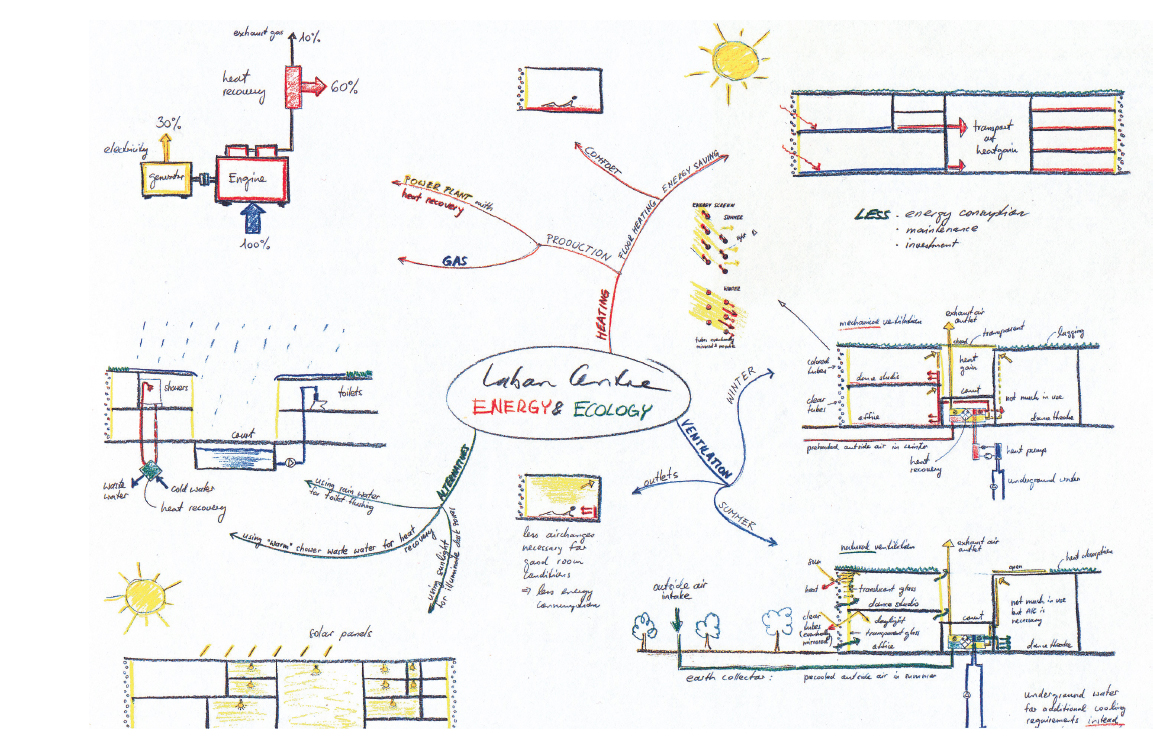 exhaust gas 10%
heat
recovery
60%
30%
electricity
generator
Engine
100%
POWER PLANT with
heat recovery
GAS
PRODUCTION
COMFORT
ENERGY SAVING
FLOOR HEATING
HEATING
ENERGY SCREEN
SUMMER
WINTER
transport
of
heatgain
LESS
· maintenance
· investment
Laban Centre
ENERGY & ECOLOGY
showers
toilets
court
waste
water
cold water
heat recovery
ALTERNATIVES
using rain water
for toilet flushing
using "warm" shower waste water for heat
recovery
using sunlight
solar panels
VENTILATION
WINTER
SUMMER
outlets
less airchanges
necessary for
good room
conditions
⇒ less energy
mechanical ventilation
exhaust air
outlet
transparent
heat
gain
colored
tubes
dance studio
clear
tubes
office
court
not much in use
dance theatre
outside air in winter
heat
recovery
heat pump
underground water
natural ventilation
exhaust air
outlet
open
heat absorption
sun
heat
translucent glass
dance studio
clear
tubes
daylight
transparent glass
office
court
not much in use
but AIR is
necessary
dance theatre
outside air
intake
earth collector:
precooled outside air in summer
underground water
for additional cooling
requirements instead